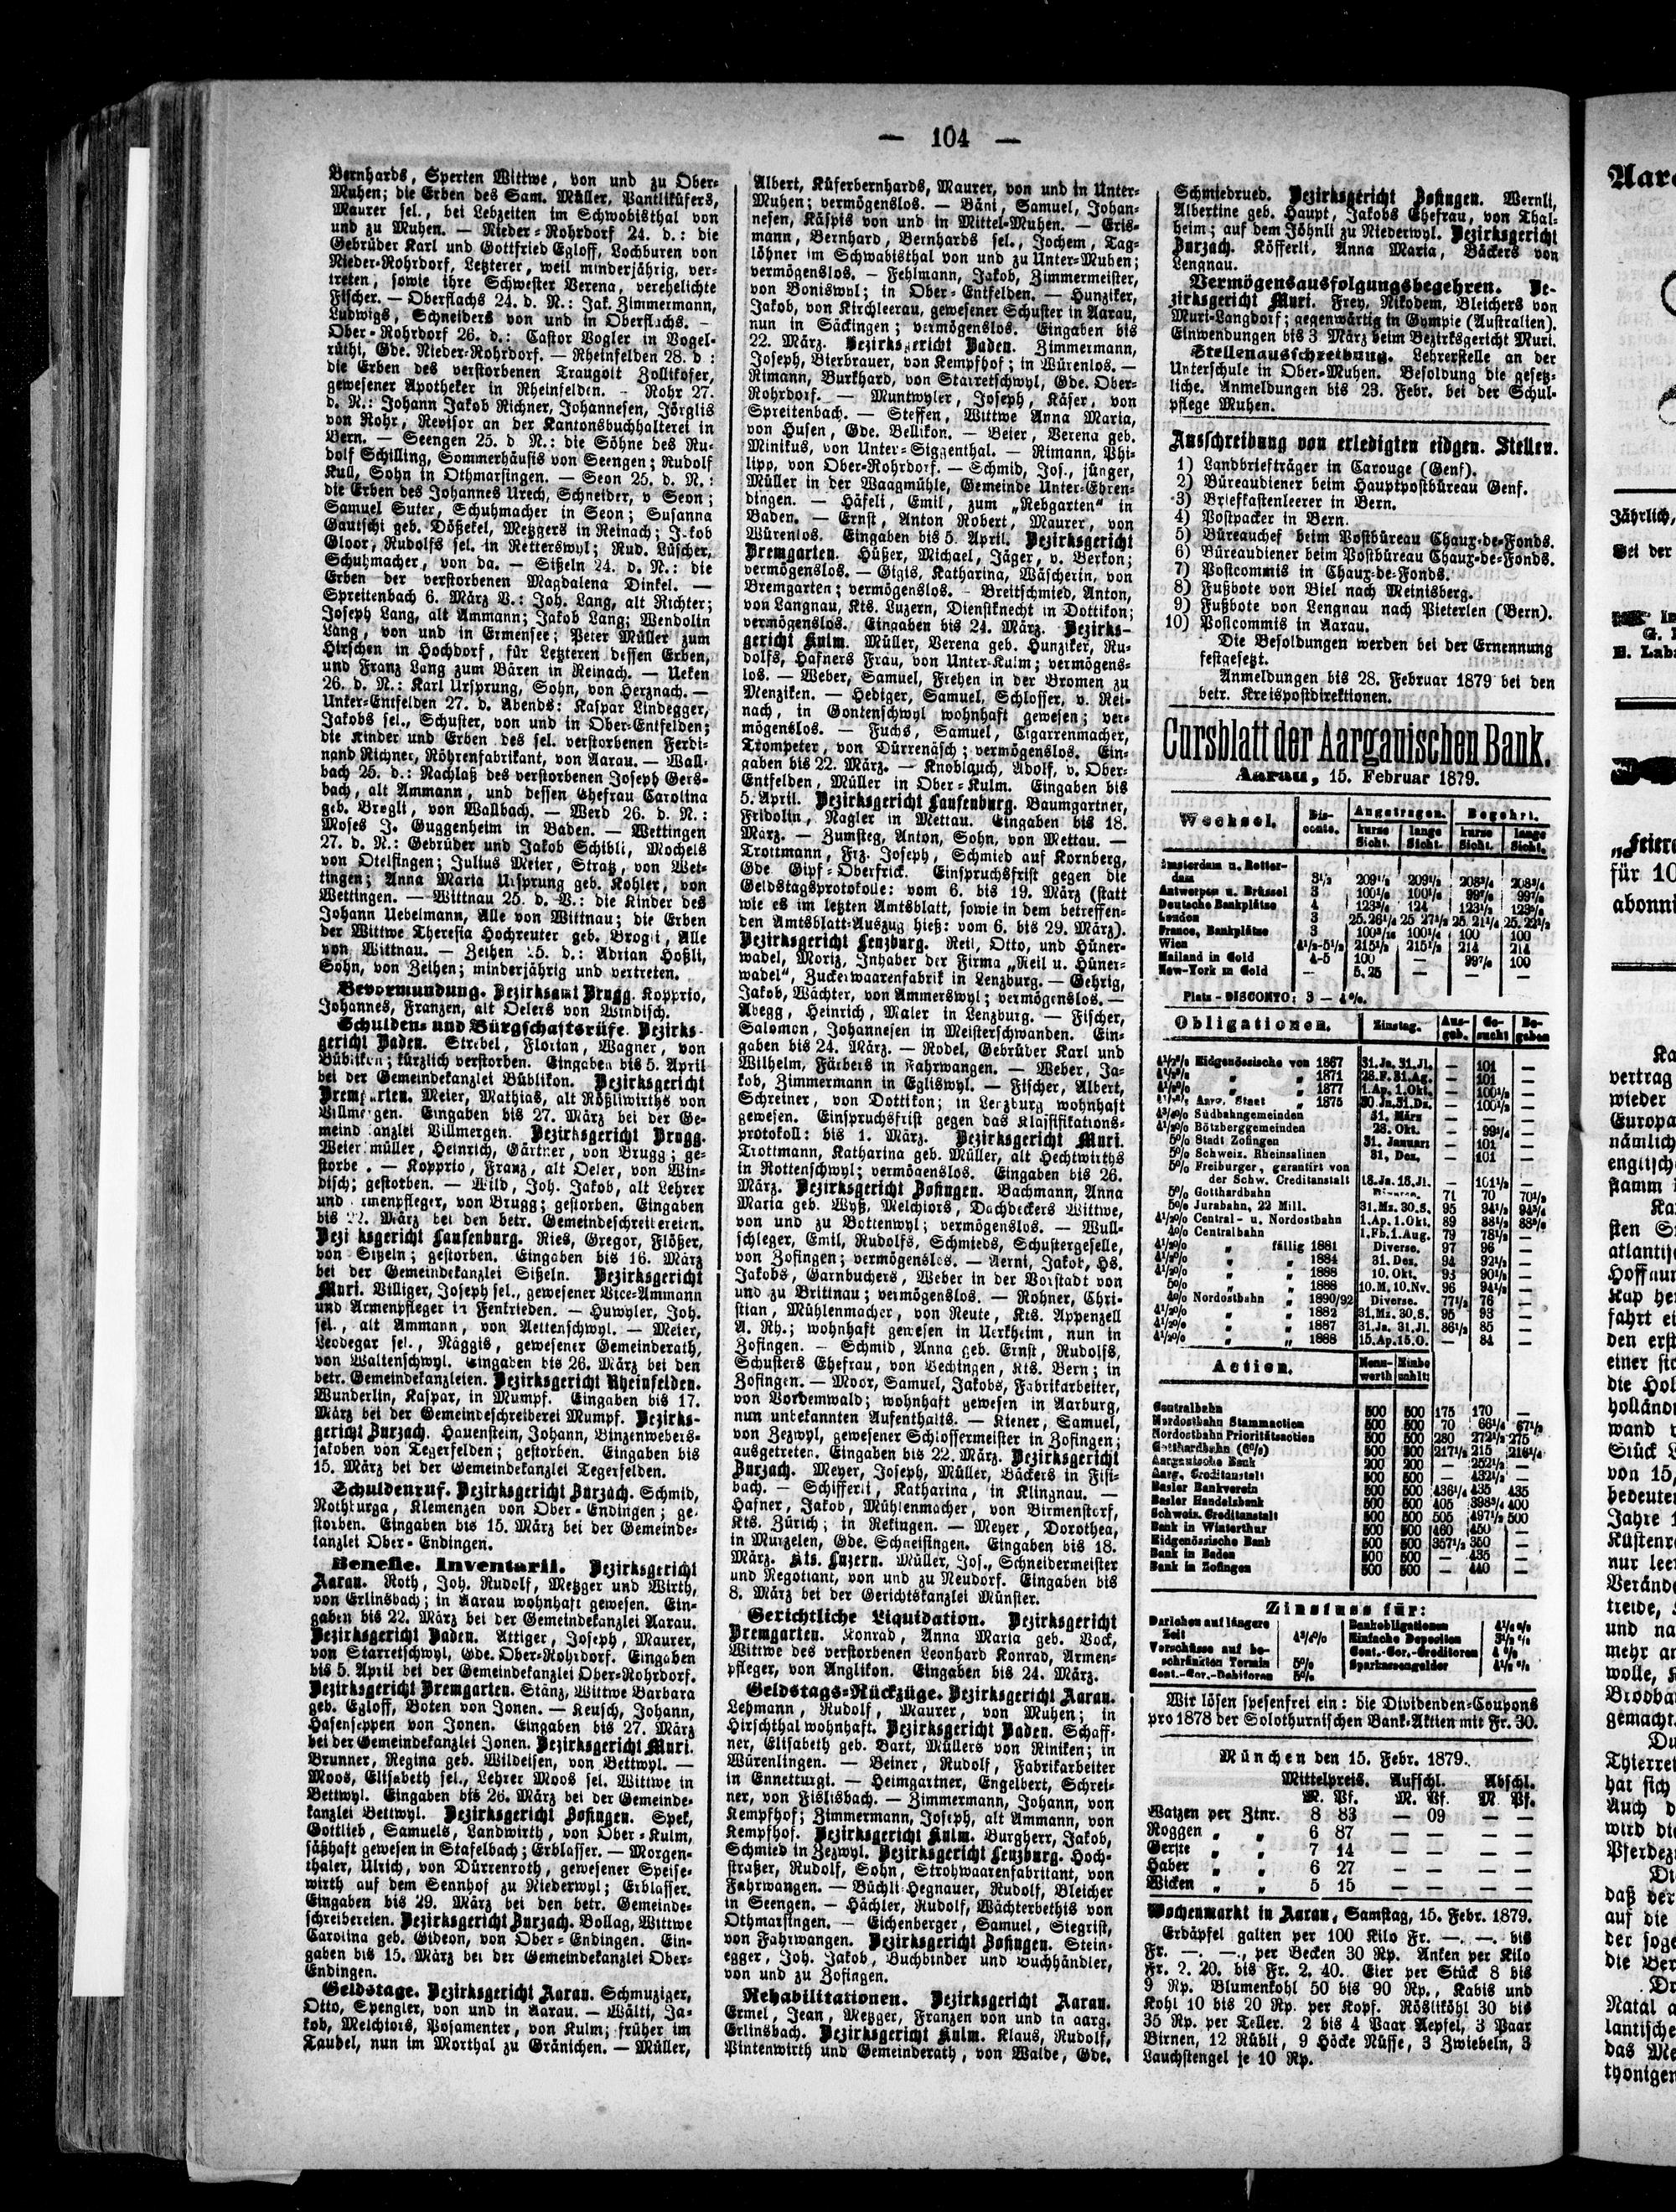 — 104 —
Bernhards, Sperten Wittwe, von und zu Ober-
Muhen; die Erben des Sam. Müller, Pantliküfers,
Maurer sel., bei Lebzeiten im Schwobisthal von
und zu Muhen. — Nieder-Rohrdorf 24. d.: die
Gebrüder Karl und Gottfried Egloff, Lochburen von
Nieder-Rohrdorf, Letzterer, weil minderjährig, ver-
treten, sowie ihre Schwester Verena, verehelichte
Fischer. — Oberflachs 24. d. N.: Jak. Zimmermann,
Ludwigs, Schneiders von und in Oberflachs. —
Ober-Rohrdorf 26. d.: Castor Vogler in Vogel-
rüthi, Gde. Nieder-Rohrdorf. — Rheinfelden 28. d :
die Erben des verstorbenen Traugott Zollikofer,
gewesener Apotheker in Rheinfelden. - Rohr 27.
d. N.: Johann Jakob Richner, Johannesen, Jörglis
von Rohr, Revisor an der Kantonsbuchhalterei in
Bern. — Seengen 25. d N.: die Söhne des Ru-
dolf Schilling, Sommerhäuslis von Seengen; Rudolf
Kull, Sohn in Othmarsingen. — Seon 25. d. N.:
die Erben des Johannes Urech, Schneider, v Seon;
Samuel Suter, Schuhmacher in Seon; Susanna
Gautschi geb. Dößekel, Metzgers in Reinach; Jakob
Gloor, Rudolfs sel. in Retterswyl; Rud. Lüscher,
Schuhmacher, von da. — Sißeln 24. d. N.: die
Erben der verstorbenen Magdalena Dinkel. —
Spreitenbach 6. März V.: Joh. Lang, alt Richter;
Joseph Lang, alt Ammann; Jakob Lang; Wendolin
Lang, von und in Ermensee; Peter Müller zum
Hirschen in Hochdorf, für Letzteren dessen Erben,
und Franz Lang zum Bären in Reinach. — Ueken
26. d. N.: Karl Ursprung, Sohn, von Herznach. —
Unter-Entfelden 27. d. Abends: Kaspar Lindegger,
Jakobs sel., Schuster, von und in Ober-Entfelden;
die Kinder und Erben des sel. verstorbenen Ferdi-
nand Richner, Röhrenfabrikant, von Aarau. — Wall-
bach 25. d.: Nachlaß des verstorbenen Joseph Gers-
bach, alt Ammann, und dessen Ehefrau Carolina
geb. Brogli, von Wallbach. — Werd 26. d. N.:
Moses J. Guggenheim in Baden. — Wettingen
27. d. N.: Gebrüder und Jakob Schibli, Mochels
von Otelfingen; Julius Meier, Stratz, von Wet-
tingen; Anna Maria Ursprung geb. Kohler, von
Wettingen. — Wittnau 25. d. V.: die Kinder des
Johann Uebelmann, Alle von Wittnau; die Erben
der Wittwe Theresia Hochreuter geb. Brogli, Alle
von Wittnau. — Zeihen 25. d.: Adrian Hoßli,
Sohn, von Zeihen; minderjährig und vertreten.
Bevormundung. Bezirksamt Brugg. Kopprio,
Johannes, Franzen, alt Oelers von Windisch.
Schulden- und Bürgschaftsrüfe. Bezirks-
gericht Baden. Strebel, Florian, Wagner, von
Büblikon; kürzlich verstorben. Eingaben bis 5. April
bei der Gemeindekanzlei Büblikon. Bezirksgericht
Bremgarten. Meier, Mathias, alt Rößliwirths von
Villmergen. Eingaben bis 27. März bei der Ge-
meindkanzlei Villmergen. Bezirksgericht Brugg.
Weiermüller, Heinrich, Gärtner, von Brugg; ge-
storbe . — Kopprio, Franz, alt Oeler, von Win-
disch; gestorben. — Wild, Joh. Jakob, alt Lehrer
und Armenpfleger, von Brugg; gestorben. Eingaben
bis 22. März bei den betr. Gemeindeschreibereien.
Bezirksgericht Laufenburg. Ries, Gregor, Flößer,
von Sißeln; gestorben. Eingaben bis 16. März
bei der Gemeindekanzlei Sißeln. Bezirksgericht
Muri. Villiger, Joseph sel., gewesener Vice-Ammann
und Armenpfleger in Fenkrieden. — Huwyler, Joh.
sel., alt Ammann, von Aettenschwyl. — Meier,
Leodegar sel., Näggis, gewesener Gemeinderath,
von Waltenschwyl. Eingaben bis 26. März bei den
betr. Gemeindekanzleien. Bezirksgericht Rheinfelden.
Wunderlin, Kaspar, in Mumpf. Eingaben bis 17.
März bei der Gemeindeschreiberei Mumpf. Bezirks-
gericht Zurzach. Hauenstein, Johann, Binzenwebers-
jakoben von Tegerfelden; gestorben. Eingaben bis
15. März bei der Gemeindekanzlei Tegerfelden.
Schuldenruf. Bezirksgericht Zurzach. Schmid,
Nothburga, Klemenzen von Ober-Endingen; ge-
storben. Eingaben bis 15. März bei der Gemeinde-
kanzlei Ober-Endingen.
Benefic. Inventarii. Bezirksgericht
Aarau. Roth, Joh. Rudolf, Metzger und Wirth,
von Erlinsbach; in Aarau wohnhaft gewesen. Ein-
gaben bis 22. März bei der Gemeindekanzlei Aarau.
Bezirksgericht Baden. Attiger, Joseph, Maurer,
von Starretschwyl, Gde. Ober-Rohrdorf. Eingaben
bis 5. April bei der Gemeindekanzlei Ober-Rohrdorf.
Bezirksgericht Bremgarten. Stänz, Wittwe Barbara
geb. Egloff, Boten von Jonen. — Keusch, Johann,
Hasenseppen von Jonen. Eingaben bis 27. März
bei der Gemeindekanzlei Jonen. Bezirksgericht Muri.
Brunner, Regina geb. Wildeisen, von Bettwyl. —
Moos, Elisabeth sel., Lehrer Moos sel. Wittwe in
Bettwyl. Eingaben bis 26. März bei der Gemeinde-
kanzlei Bettwyl. Bezirksgericht Zofingen. Spek,
Gottlieb, Samuels, Landwirth, von Ober-Kulm,
säßhaft gewesen in Stafelbach; Erblasser. — Morgen-
thaler, Ulrich, von Dürrenroth, gewesener Speise-
wirth auf dem Sennhof zu Niederwyl; Erblasser.
Eingaben bis 29. März bei den betr. Gemeinde-
schreibereien. Bezirksgericht Zurzach. Bollag, Wittwe
Carolina geb. Gideon, von Ober-Endingen. Ein-
gaben bis 15. März bei der Gemeindekanzlei Ober-
Endingen.
Geldstage. Bezirksgericht Aarau. Schmuziger,
Otto, Spengler, von und in Aarau. — Wälti, Ja-
kob, Melchiors, Posamenter, von Kulm; früher im
Taubel, nun im Morthal zu Gränichen. — Müller,
Albert, Küferbernhards, Maurer, von und in Unter-
Muhen; vermögenslos. — Bäni, Samuel, Johan-
nesen, Käspis von und in Mittel-Muhen. — Eris-
mann, Bernhard, Bernhards sel., Jochem, Tag-
löhner im Schwabisthal von und zu Unter-Muhen;
vermögenslos. — Fehlmann, Jakob, Zimmermeister,
von Boniswyl; in Ober-Entfelden. — Hunziker,
Jakob, von Kirchleerau, gewesener Schuster in Aarau,
nun in Säckingen; vermögenslos. Eingaben bis
22. März. Bezirksgericht Baden. Zimmermann,
Joseph, Bierbrauer, von Kempfhof; in Würenlos. —
Rimann, Burkhard, von Starretschwyl, Gde. Ober-
Rohrdorf. — Muntwyler, Joseph, Käser, von
Spreitenbach. — Steffen, Wittwe Anna Maria,
von Husen, Gde. Bellikon. — Beier, Verena geb.
Minikus, von Unter-Siggenthal. — Rimann, Phi-
lipp, von Ober-Rohrdorf. — Schmid, Jos., jünger,
Müller in der Waagmühle, Gemeinde Unter-Ehren-
dingen. — Häfeli, Emil, zum „Rebgarten“ in
Baden. — Ernst, Anton Robert, Maurer, von
Würenlos. Eingaben bis 5. April. Bezirksgericht
Bremgarten. Hüßer, Michael, Jäger, v. Berkon;
vermögenslos. — Gigis, Katharina, Wäscherin, von
Bremgarten; vermögenslos. - Breitschmied, Anton,
von Langnau, Kts. Luzern, Dienstknecht in Dottikon;
vermögenslos. Eingaben bis 24. März. Bezirks-
gericht Kulm. Müller, Verena geb. Hunziker, Ru-
dolfs, Hafners Frau, von Unter-Kulm; vermögens-
los. — Weber, Samuel, Frehen in der Bromen zu
Menziken. — Hediger, Samuel, Schlosser, v. Rei-
nach, in Gontenschwyl wohnhaft gewesen; ver-
mögenslos. — Fuchs, Samuel, Cigarrenmacher,
Trompeter, von Dürrenäsch; vermögenslos. Ein-
gaben bis 22. März. — Knoblauch, Adolf, v. Ober-
Entfelden, Müller in Ober-Kulm. Eingaben bis
5. April. Bezirksgericht Laufenburg. Baumgartner,
Fridolin, Nagler in Mettau. Eingaben bis 18.
März. — Zumsteg, Anton, Sohn, von Mettau. —
Trottmann, Frz. Joseph, Schmied auf Kornberg,
Gde Gipf-Oberfrick. Einspruchsfrist gegen die
Geldstagsprotokolle: vom 6. bis 19. März (statt
wie es im letzten Amtsblatt, sowie in dem betreffen-
den Amtsblatt-Auszug hieß: vom 6. bis 29. März).
Bezirksgericht Lenzburg. Reil, Otto, und Hüner-
wadel, Moriz, Inhaber der Firma „Reil u. Hüner-
wadel“, Zuckerwaarenfabrik in Lenzburg. — Gehrig,
Jakob, Wächter, von Ammerswyl; vermögenslos. —
Abegg, Heinrich, Maler in Lenzburg. — Fischer,
Salomon, Johannesen in Meisterschwanden. Ein-
gaben bis 24. März. — Rodel, Gebrüder Karl und
Wilhelm, Färbers in Fahrwangen. — Weber, Ja-
kob, Zimmermann in Egliswyl. — Fischer, Albert,
Schreiner, von Dottikon; in Lenzburg wohnhaft
gewesen. Einspruchsfrist gegen das Klassifikations-
protokoll: bis 1. März. Bezirksgericht Muri.
Trottmann, Katharina geb. Müller, alt Hechtwirths
in Rottenschwyl; vermögenslos. Eingaben bis 26.
März. Bezirksgericht Zofingen. Bachmann, Anna
Maria geb. Wyß, Melchiors, Dachdeckers Wittwe,
von und zu Bottenwyl; vermögenslos. — Wull-
schleger, Emil, Rudolfs, Schmieds, Schustergeselle,
von Zofingen; vermögenslos. — Aerni, Jakob, Hs.
Jakobs, Garnbuchers, Weber in der Vorstadt von
und zu Brittnau; vermögenslos. — Rohner, Chri-
stian, Mühlenmacher, von Reute, Kts. Appenzell
A. Rh.; wohnhaft gewesen in Uerkheim, nun in
Zofingen. — Schmid, Anna geb. Ernst, Rudolfs,
Schusters Ehefrau, von Vechingen, Kts. Bern; in
Zofingen. — Moor, Samuel, Jakobs, Fabrikarbeiter,
von Vordemwald; wohnhaft gewesen in Aarburg,
nun unbekannten Aufenthalts. — Kiener, Samuel,
von Zezwyl, gewesener Schlossermeister in Zofingen;
ausgetreten. Eingaben bis 22. März. Bezirksgericht
Zurzach. Meyer, Joseph, Müller, Bäckers in Fisi-
bach. — Schifferli, Katharina, in Klingnau. —
Hafner, Jakob, Mühlenmacher, von Birmenstorf,
Kts. Zürich; in Rekingen. — Meyer, Dorothea,
in Murzelen, Gde. Schneisingen. Eingaben bis 18.
März. Kts. Luzern. Müller, Jos., Schneidermeister
und Negotiant, von und zu Neudorf. Eingaben bis
8. März bei der Gerichtskanzlei Münster.
Gerichtliche Liquidation. Bezirksgericht
Bremgarten. Konrad, Anna Maria geb. Bock,
Wittwe des verstorbenen Leonhard Konrad, Armen-
pfleger, von Anglikon. Eingaben bis 24. März.
Geldstags-Rückzüge. Bezirksgericht Aarau.
Lehmann, Rudolf, Maurer, von Muhen; in
Hirschthal wohnhaft. Bezirksgericht Baden. Schaff-
ner, Elisabeth geb. Bart, Müllers von Riniken; in
Würenlingen. — Beiner, Rudolf, Fabrikarbeiter
in Ennetturgi. — Heimgartner, Engelbert, Schrei-
ner, von Fislisbach. — Zimmermann, Johann, von
Kempfhof; Zimmermann, Joseph, alt Ammann, von
Kempfhof. Bezirksgericht Kulm. Burgherr, Jakob,
Schmied in Zezwyl. Bezirksgericht Lenzburg. Hoch-
straßer, Rudolf, Sohn, Strohwaarenfabrikant, von
Fahrwangen. — Büchli-Hegnauer, Rudolf, Bleicher
in Seengen. — Hächler, Rudolf, Wächterbethis von
Othmarsingen. — Eichenberger, Samuel, Siegrist,
von Fahrwangen. Bezirksgericht Zofingen. Stein-
egger, Joh. Jakob, Buchbinder und Buchhändler,
von und zu Zofingen.
Rehabilitationen. Bezirksgericht Aarau.
Ermel, Jean, Metzger, Franzen von und in aarg.
Erlinsbach. Bezirksgericht Kulm. Klaus, Rudolf,
Pintenwirth und Gemeinderath, von Walde, Gde.
Schmiedrued. Bezirksgericht Zofingen. Wernli,
Albertine geb. Haupt, Jakobs Ehefrau, von Thal-
heim; auf dem Jöhnli zu Niederwyl. Bezirksgericht
Zurzach. Köfferli, Anna Maria, Bäckers von
Lengnau.
Vermögensausfolgungsbegehren. Be-
zirksgericht Muri. Frey, Nikodem, Bleichers von
Muri-Langdorf; gegenwärtig in Gympie (Australien).
Einwendungen bis 3 März beim Bezirksgericht Muri.
Stellenausschreibung. Lehrerstelle an der
Unterschule in Ober-Muhen. Besoldung die gesetz-
liche. Anmeldungen bis 23. Febr. bei der Schul-
pflege Muhen.
Ausschreibung von erledigten eidgen. Stellen.
1) Landbriefträger in Carouge (Genf).
2) Büreaudiener beim Hauptpostbüreau Genf.
3) Briefkastenleerer in Bern.
4) Postpacker in Bern.
5) Büreauchef beim Postbüreau Chaux-de-Fonds.
6) Büreaudiener beim Postbüreau Chaux-de-Fonds.
7) Postcommis in Chaux-de-Fonds.
8) Fußbote von Biel nach Meinisberg.
9) Fußbote von Lengnau nach Pieterlen (Bern).
10) Postcommis in Aarau.
Die Besoldungen werden bei der Ernennung
festgesetzt.
Anmeldungen bis 28. Februar 1879 bei den
betr. Kreispostdirektionen.
Cursblatt der Aargauischen Bank.
Aarau, 15. Februar 1879.
Wechsel. Dis-conto. Angetragen. Begehrt.
kurze Sicht. lange Sicht. kurze Sicht. lange Sicht.
Amsterdam u. Rotter-
dam 3½ 209½ 209½ 208¾ 208¾
Antwerpen u. Brüssel 3 100⅛ 100⅛ 99⅞ 99⅞
Deutsche Bankplätze 4 123¾ 124 123½ 123⅝
London 3 25.26¼ 25 27½ 25.21¼ 25.22½
France, Bankplätze 3 100³/₁₆ 100¼ 100 100
Wien 4½-5½ 215½ 215½ 214 214
Mailand in Gold 4-5 100 — 99⅞ 100
New-York in Gold — 5.25 — — —
Platz-DISCONTO: 3 — 4%.
Obligationen. Zinstag. Aus-geb. Ge-sucht Be-geben
4½% Eidgenössische von 1867 31.Ja. 31.Jl. — 101 —
4½% „ „ 1871 28.F. 31.Ag. — 101 —
4½% „ „ 1877 1.Ap. 1.Okt. — 100½ —
Aarg. Staat „ 1875 30.Jn.31.Dz. — 100½ —
4¾% Südbahngemeinden 31. März
4½% Bötzberggemeinden 28. Okt. — 99¼ —
5% Stadt Zofingen 31. Januar — 101 —
5% Schweiz. Rheinsalinen 31. Dez. — 101 —
5% Freiburger, garantirt von
der Schw. Creditanstalt 15.Ja. 15.Jl. — 101½ —
5% Gotthardbahn Diverse. 71 70 70½
5% Jurabahn, 22 Mill. 31.Mz. 30.S. 95 94½ 94¾
4½% Central- u. Nordostbahn 1.Ap. 1.Okt. 89 88½ 88⅝
4% Centralbahn 1.Fb.1.Aug. 79 78½ —
4½% „ fällig 1881 Diverse. 97 96 —
4½% „ „ 1884 31. Dez. 94 92½ —
4½% „ „ 1888 10. Okt. 93 90½ —
5% „ „ 1888 10.M. 10.Nv. 96 94½ —
4% Nordostbahn „ 1890/92 Diverse. 77½ 76 —
4½% „ „ 1882 31.Mz. 30.S. 95 93 —
4½% „ „ 1887 31.Ja. 31.Jl. 86½ 85 —
4½% „ „ 1888 15.Ap.15.O. — 84 —
Actien. Nenn-werth Einbe zahlt:
Centralbahn 500 500 175 170 —
Nordostbahn Stammactien 500 500 70 66¼ 67½
Nordostbahn Prioritätsactien 500 500 280 272½ 275
Gotthardbahn (6%) 500 300 217½ 215 216¼
Aargauische Bank 200 200 — 252½ —
Aarg. Creditanstalt 500 500 — 432½ —
Basler Bankverein 500 500 436¼ 435 435
Basler Handelsbank 500 500 405 398¾ 400
Schweiz. Creditanstalt 500 500 505 497½ 500
Bank in Winterthur 500 500 460 450 —
Eidgenössische Bank 500 500 357½ 350 —
Bank in Baden 500 500 — 435 —
Bank in Zofingen 500 500 — 440 —
Zinsfuss für:
Darlehen auf längere
Zeit 4¾%
Vorschüsse auf be-
schränkten Termin 5%
Cont.-Cor.-Debitoren 5%
Bankobligationen 4½%
Einfache Depositen 3½%
Cont.-Cor.-Creditoren 4%
Sparkassengelder 4½%
Wir lösen spesenfrei ein: die Dividenden-Coupons
pro 1878 der Solothurnischen Bank-Aktien mit Fr. 30.
München den 15. Febr. 1879.
Mittelpreis. Aufschl. Abschl.
M. Pf. M. Pf. M. Pf.
Waizen per Ztnr. 8 83 — 09 — —
Roggen „ „ 6 87 — — — —
Gerste „ „ 7 14 — — — —
Haber „ „ 6 27 — — — —
Wicken „ „ 5 15 — — — —
Wochenmarkt in Aarau, Samstag, 15. Febr. 1879.
Erdäpfel galten per 100 Kilo Fr. —. —. bis
Fr. —. —., per Becken 30 Rp. Anken per Kilo
Fr. 2. 20. bis Fr. 2. 40. Eier per Stück 8 bis
9 Rp. Blumenkohl 50 bis 90 Rp., Kabis und
Kohl 10 bis 20 Rp. per Kopf. Rösliköhl 30 bis
35 Rp. per Teller. 2 bis 4 Paar Aepfel, 3 Paar
Birnen, 12 Rübli, 9 Höcke Nüsse, 3 Zwiebeln, 3
Lauchstengel je 10 Rp.